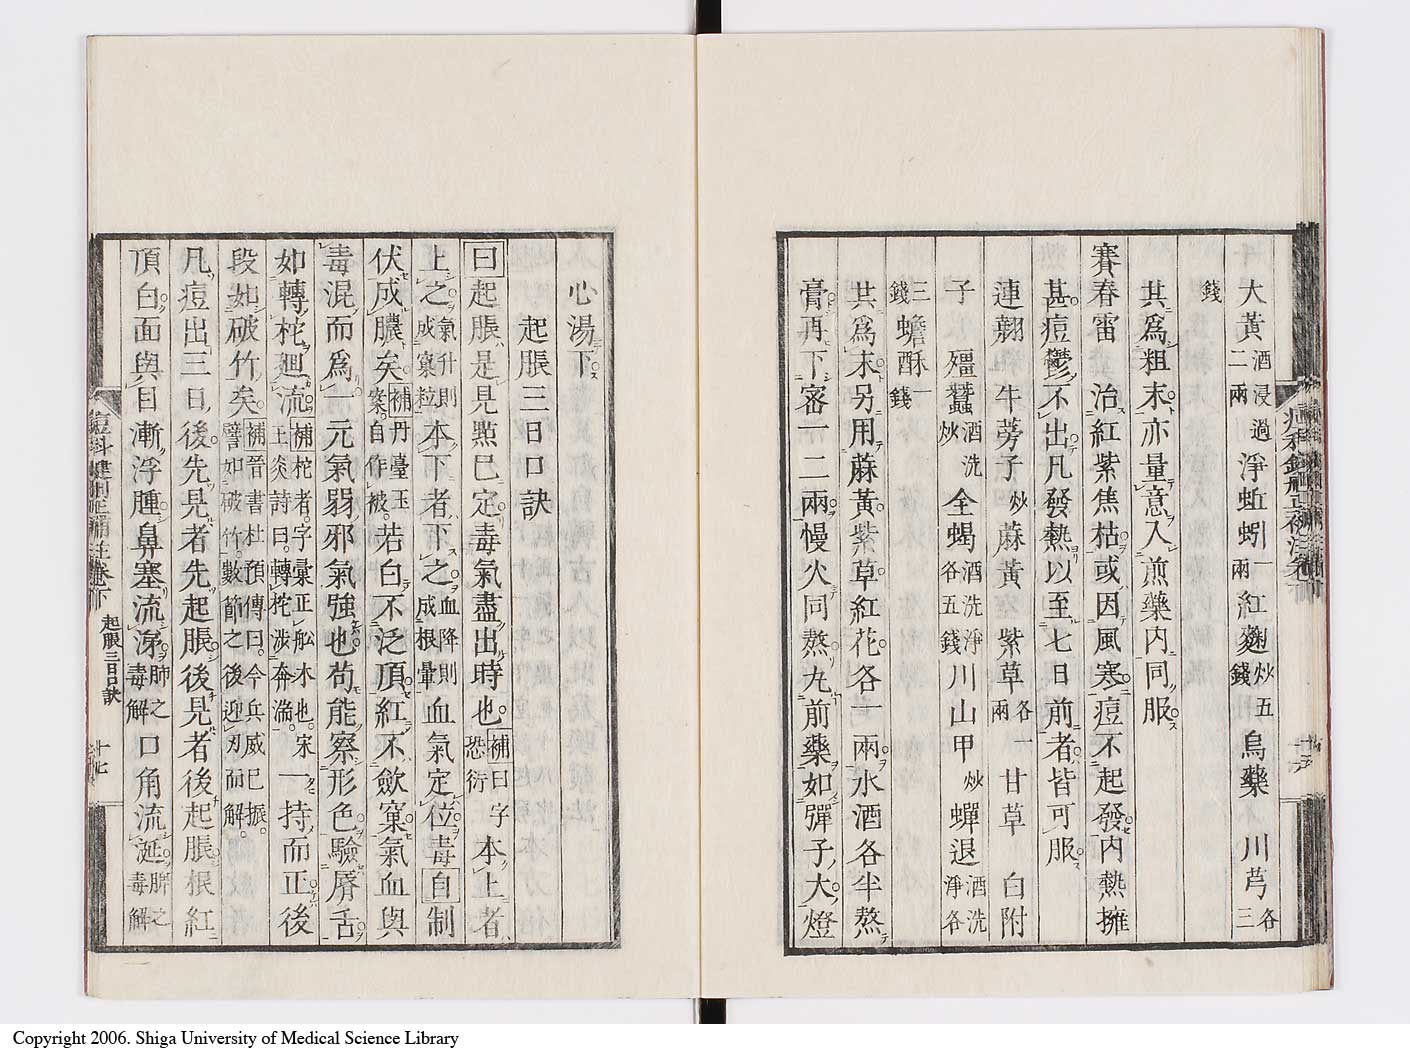 大黃酒浸二兩過淨蚯蚓一兩紅麴炒五錢烏藥川芎各三
錢
其爲粗末亦量意入煎藥內同服
賽春雷治紅紫焦枯或因風寒痘不起發內熱擁
甚痘鬱不出凡發熱以至七日前者皆可服
連翹牛蒡子炒蔴黃紫草各一兩甘草白附
子殭蠶酒洗炒全蝎酒洗淨各五錢川山甲炒蟬退酒洗淨各
三錢蟾酥一錢
其爲末另用蔴黃紫草紅花各一兩水酒各半熬
膏再下蜜一二兩慢火同熬丸前藥如彈子大燈
心湯下
起脹三日口訣
曰起脹是見點已定毒氣盡出時也補曰字恐衍本上者
上之氣升則成窠粒本下者下之血降則成根暈血氣定位毒自制
伏成膿矣補丹臺玉案自作被若白不泛頂紅不歛窠氣血與
毒混而爲一元氣弱邪氣強也苟能察形色驗脣舌
如轉柁廻流補柁者字彙正舩木也宋王炎詩曰轉柁涉奔湍一持而正後
段如破竹矣補晉書杜預傳曰今兵威已振譬如破竹數節之後迎刃而解
凡痘出三日後先見者先起脹後見者後起脹根紅
頂白面與目漸浮腫鼻塞流涕肺之毒解口角流涎脾之毒解
痘科鍵刪正補註卷下 起脹三日口訣 十七
Copyright 2006. Shiga University of Medical Science Library